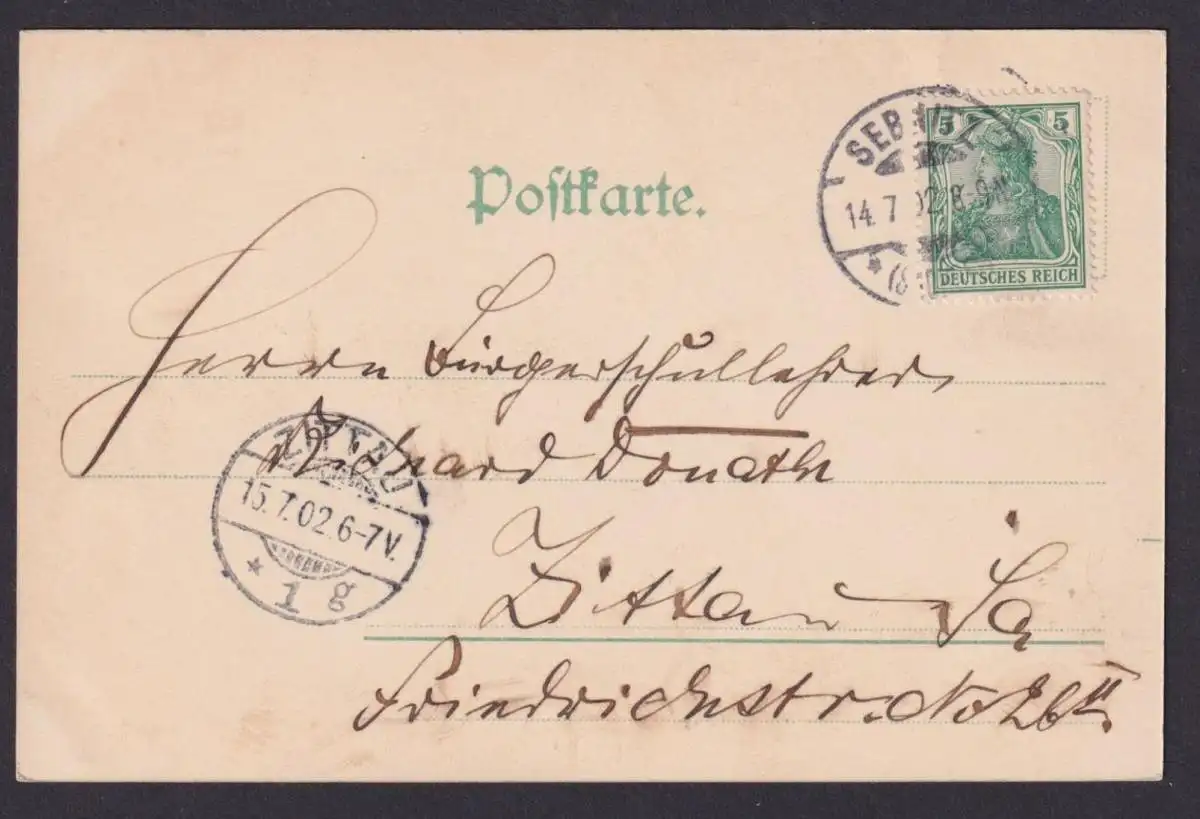 5 5
SEBNITZ
14.7.02.8-9N.
DEUTSCHES REICH
Postkarte.
Herrn Bürgerschullehrer
Richard Donath
ZITTAU
15.7.02.6-7V.
* 1 g
Zittau Sa
Friedrichstr. No 26 II.